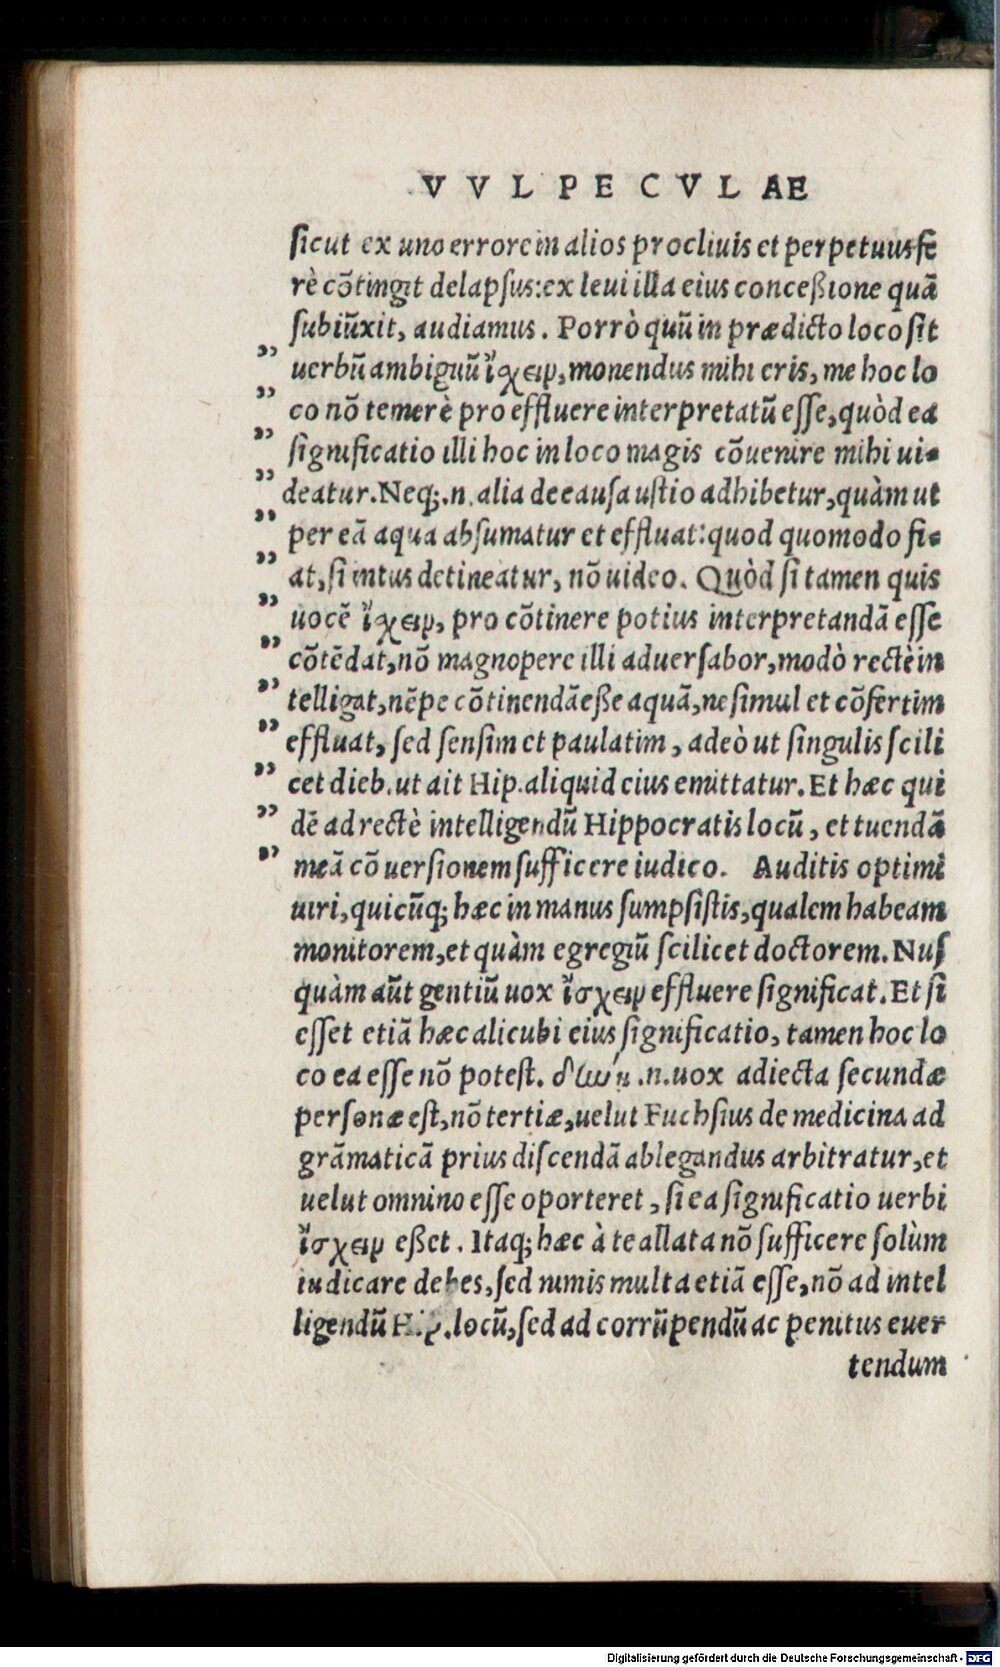 VVLPECVLAE
sicut ex uno errore in alios procliuis et perpetuus fe
rè cõtingit delapsus: ex leui illa eius conceßione quã
subiũxit, audiamus. Porrò quũ in prædicto loco sit
„ uerbũ ambiguũ ἴχειν, monendus mihi eris, me hoc lo
„ co nõ temerè pro effluere interpretatũ esse, quòd ea
„ significatio illi hoc in loco magis cõuenire mihi ui-
„ deatur. Neq;.n. alia de causa ustio adhibetur, quàm ut
„ per eã aqua absumatur et effluat: quod quomodo fi-
„ at, si intus detineatur, nõ uideo. Quòd si tamen quis
„ uocẽ ἴχειν, pro cõtinere potius interpretandã esse
„ cõtẽdat, nõ magnopere illi aduersabor, modò rectè in
„ telligat, nẽpe cõtinendã eße aquã, ne simul et cõfertim
„ effluat, sed sensim et paulatim, adeò ut singulis scili
„ cet dieb. ut ait Hip. aliquid eius emittatur. Et hæc qui
„ dẽ ad rectè intelligendũ Hippocratis locũ, et tuendã
„ meã cõuersionem sufficere iudico. Auditis optimi
uiri, quicũq; hæc in manus sumpsistis, qualem habeam
monitorem, et quàm egregiũ scilicet doctorem. Nus
quàm aũt gentiũ uox ἴσχειν effluere significat. Et si
esset etiã hæc alicubi eius significatio, tamen hoc lo
co ea esse nõ potest. .n. uox adiecta secundæ
personæ est, nõ tertiæ, uelut Fuchsius de medicina ad
grãmaticã prius discendã ablegandus arbitratur, et
uelut omnino esse oporteret, si ea significatio uerbi
ἴσχειν eßet. Itaq; hæc à te allata nõ sufficere solùm
iudicare debes, sed nimis multa etiã esse, nõ ad intel
ligendũ Hip. locũ, sed ad corrũpendũ ac penitus euer
tendum
Digitalisierung gefördert durch die Deutsche Forschungsgemeinschaft - DFG